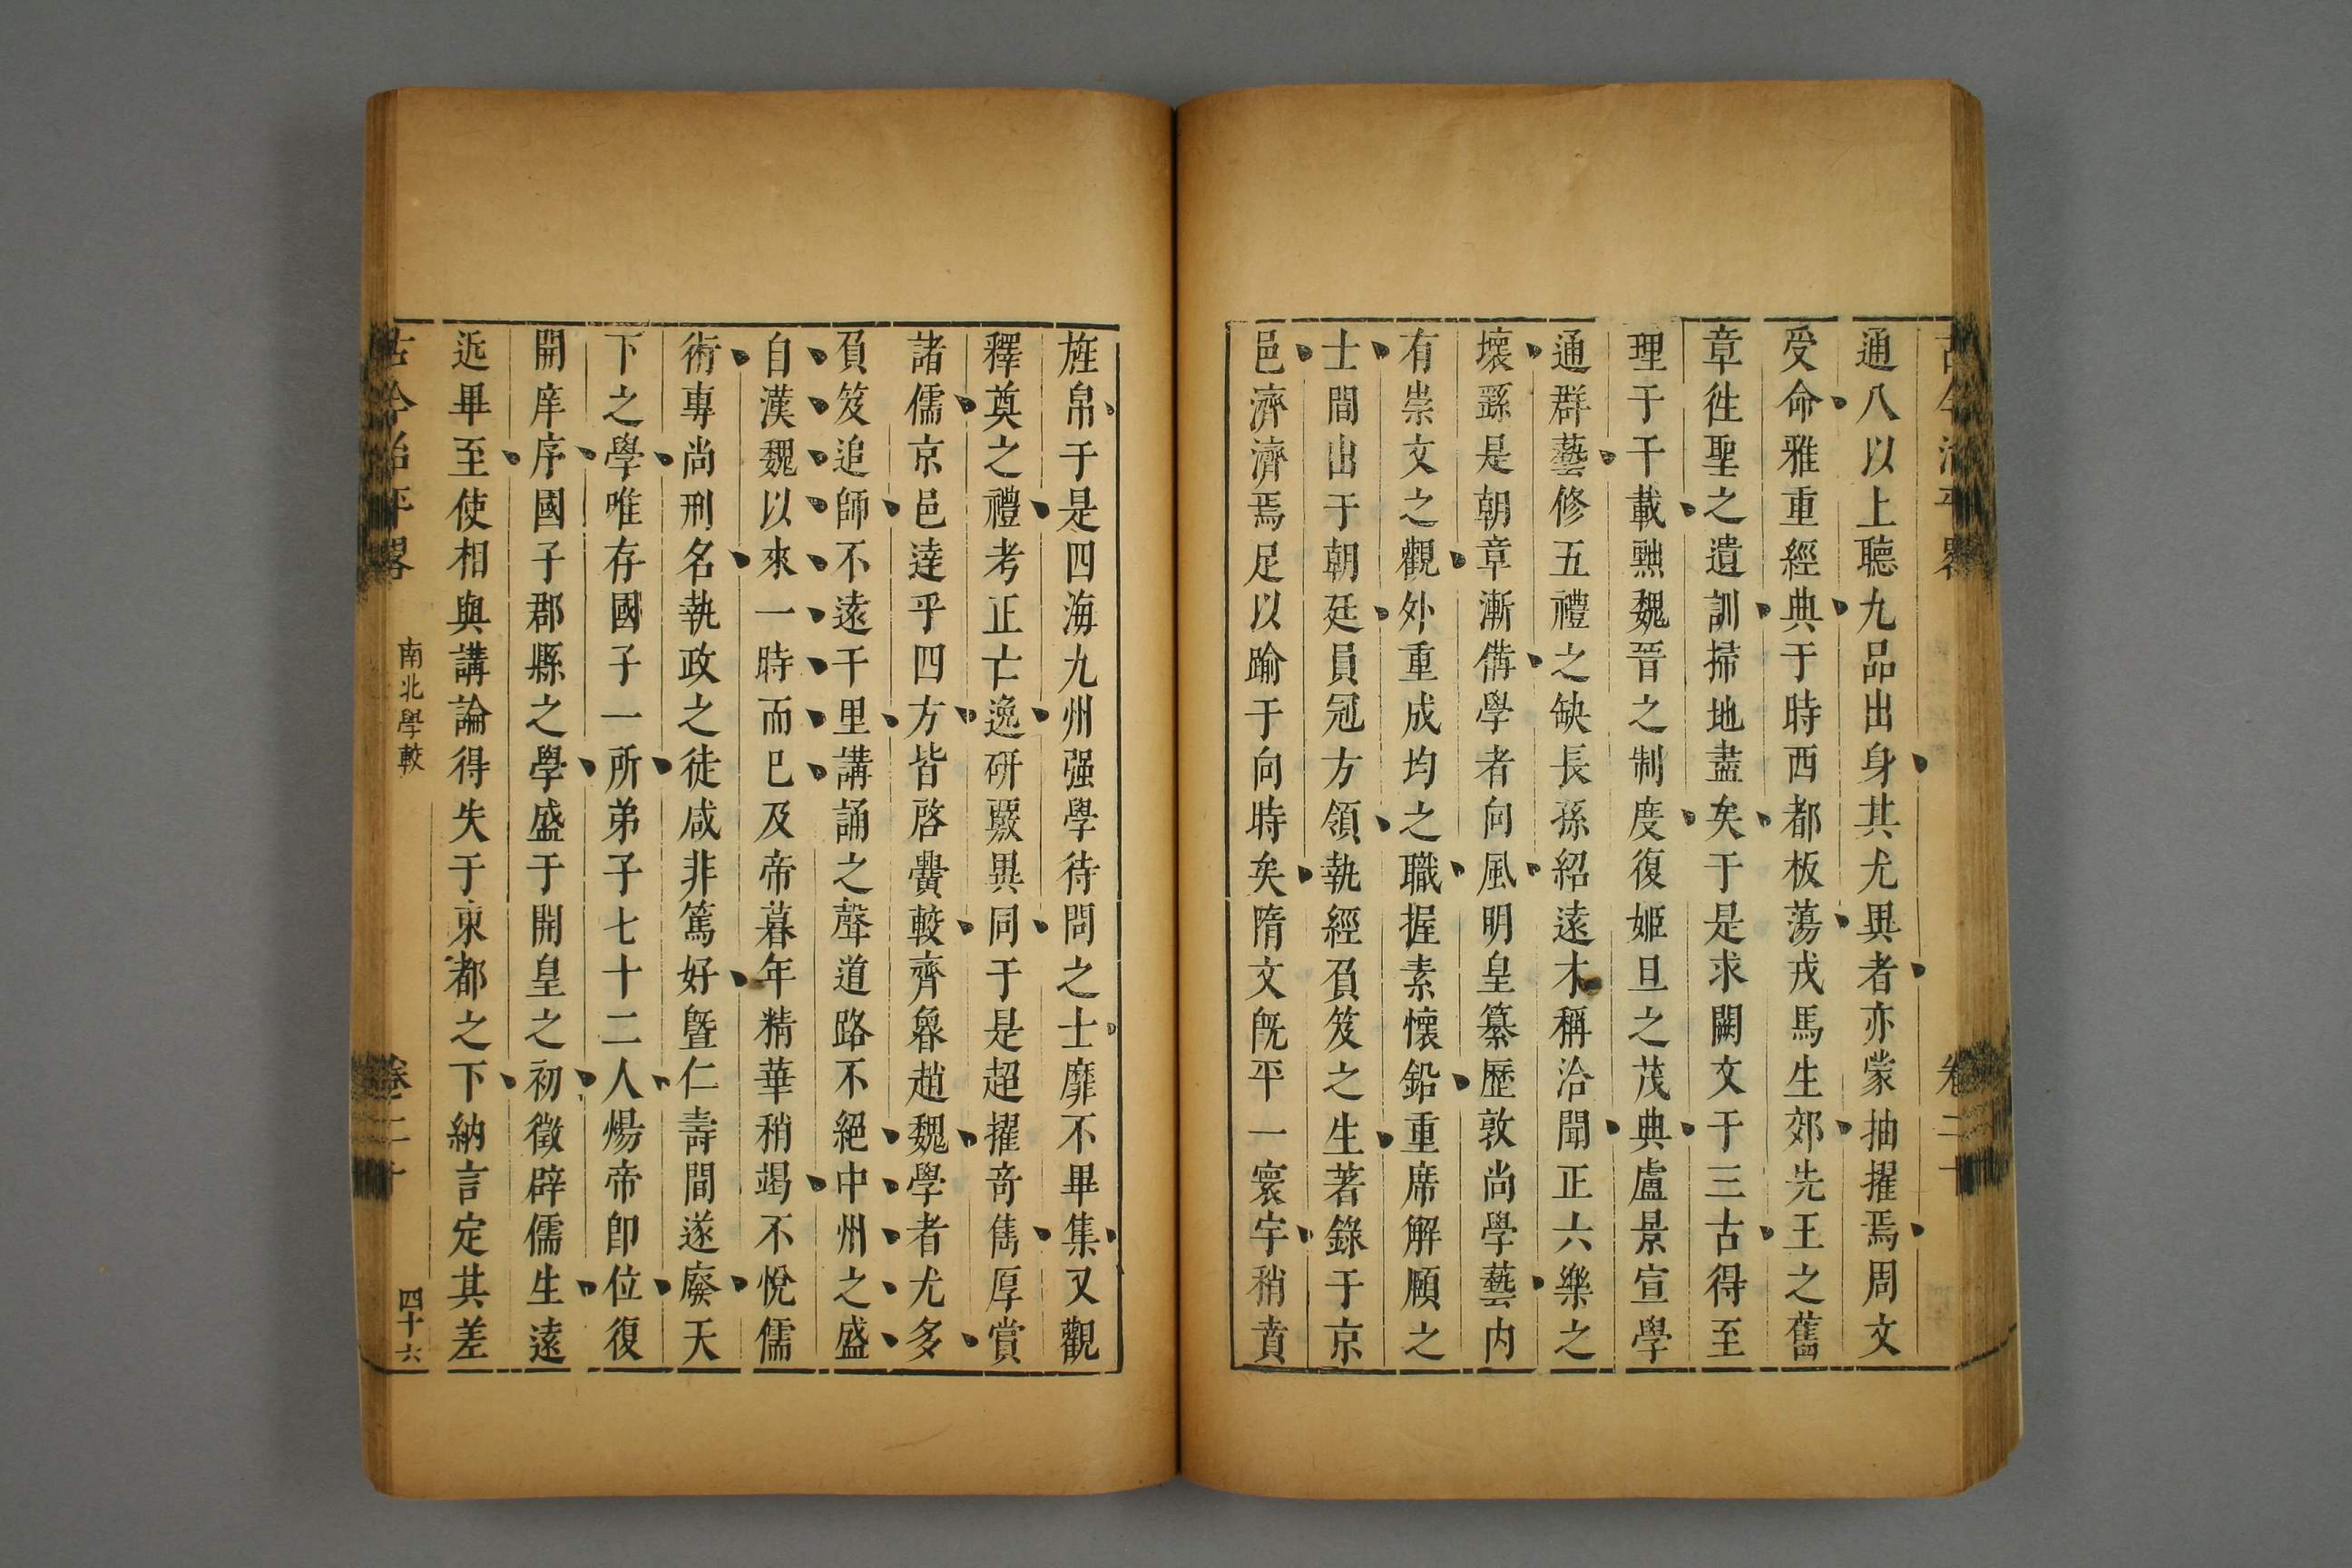 通八以上聽九品出身其尤異者亦蒙抽擢焉周文
受命雅重經典于時西都板蕩戎馬生郊先王之舊
章徃聖之遺訓掃地盡矣于是求闕文于三古得至
理于千載黜魏晉之制度復姬旦之茂典盧景宣學
通群藝修五禮之缺長孫紹遠才稱洽聞正六樂之
壞繇是朝章漸備學者向風明皇纂歷敦尚學藝内
有崇文之觀外重成均之職握素懷鉛重席解頤之
士間出于朝廷員冠方領執經負笈之生著錄于京
邑濟濟焉足以踰于向時矣隋文旣平一寰宇稍賁
旌帛于是四海九州强學待問之士靡不畢集又觀
釋奠之禮考正亡逸研覈異同于是超擢竒雋厚賞
諸儒京邑達乎四方皆啓黌較齊魯趙魏學者尤多
負笈追師不遠千里講誦之聲道路不絕中州之盛
自漢魏以來一時而已及帝暮年精華稍竭不悅儒
術專尚刑名執政之徒咸非篤好曁仁壽間遂廢天
下之學唯存國子一所弟子七十二人煬帝卽位復
開庠序國子郡縣之學盛于開皇之初徵辟儒生遠
近畢至使相與講論得失于東都之下納言定其差
古今治平畧 南北學較 卷二十 四十六